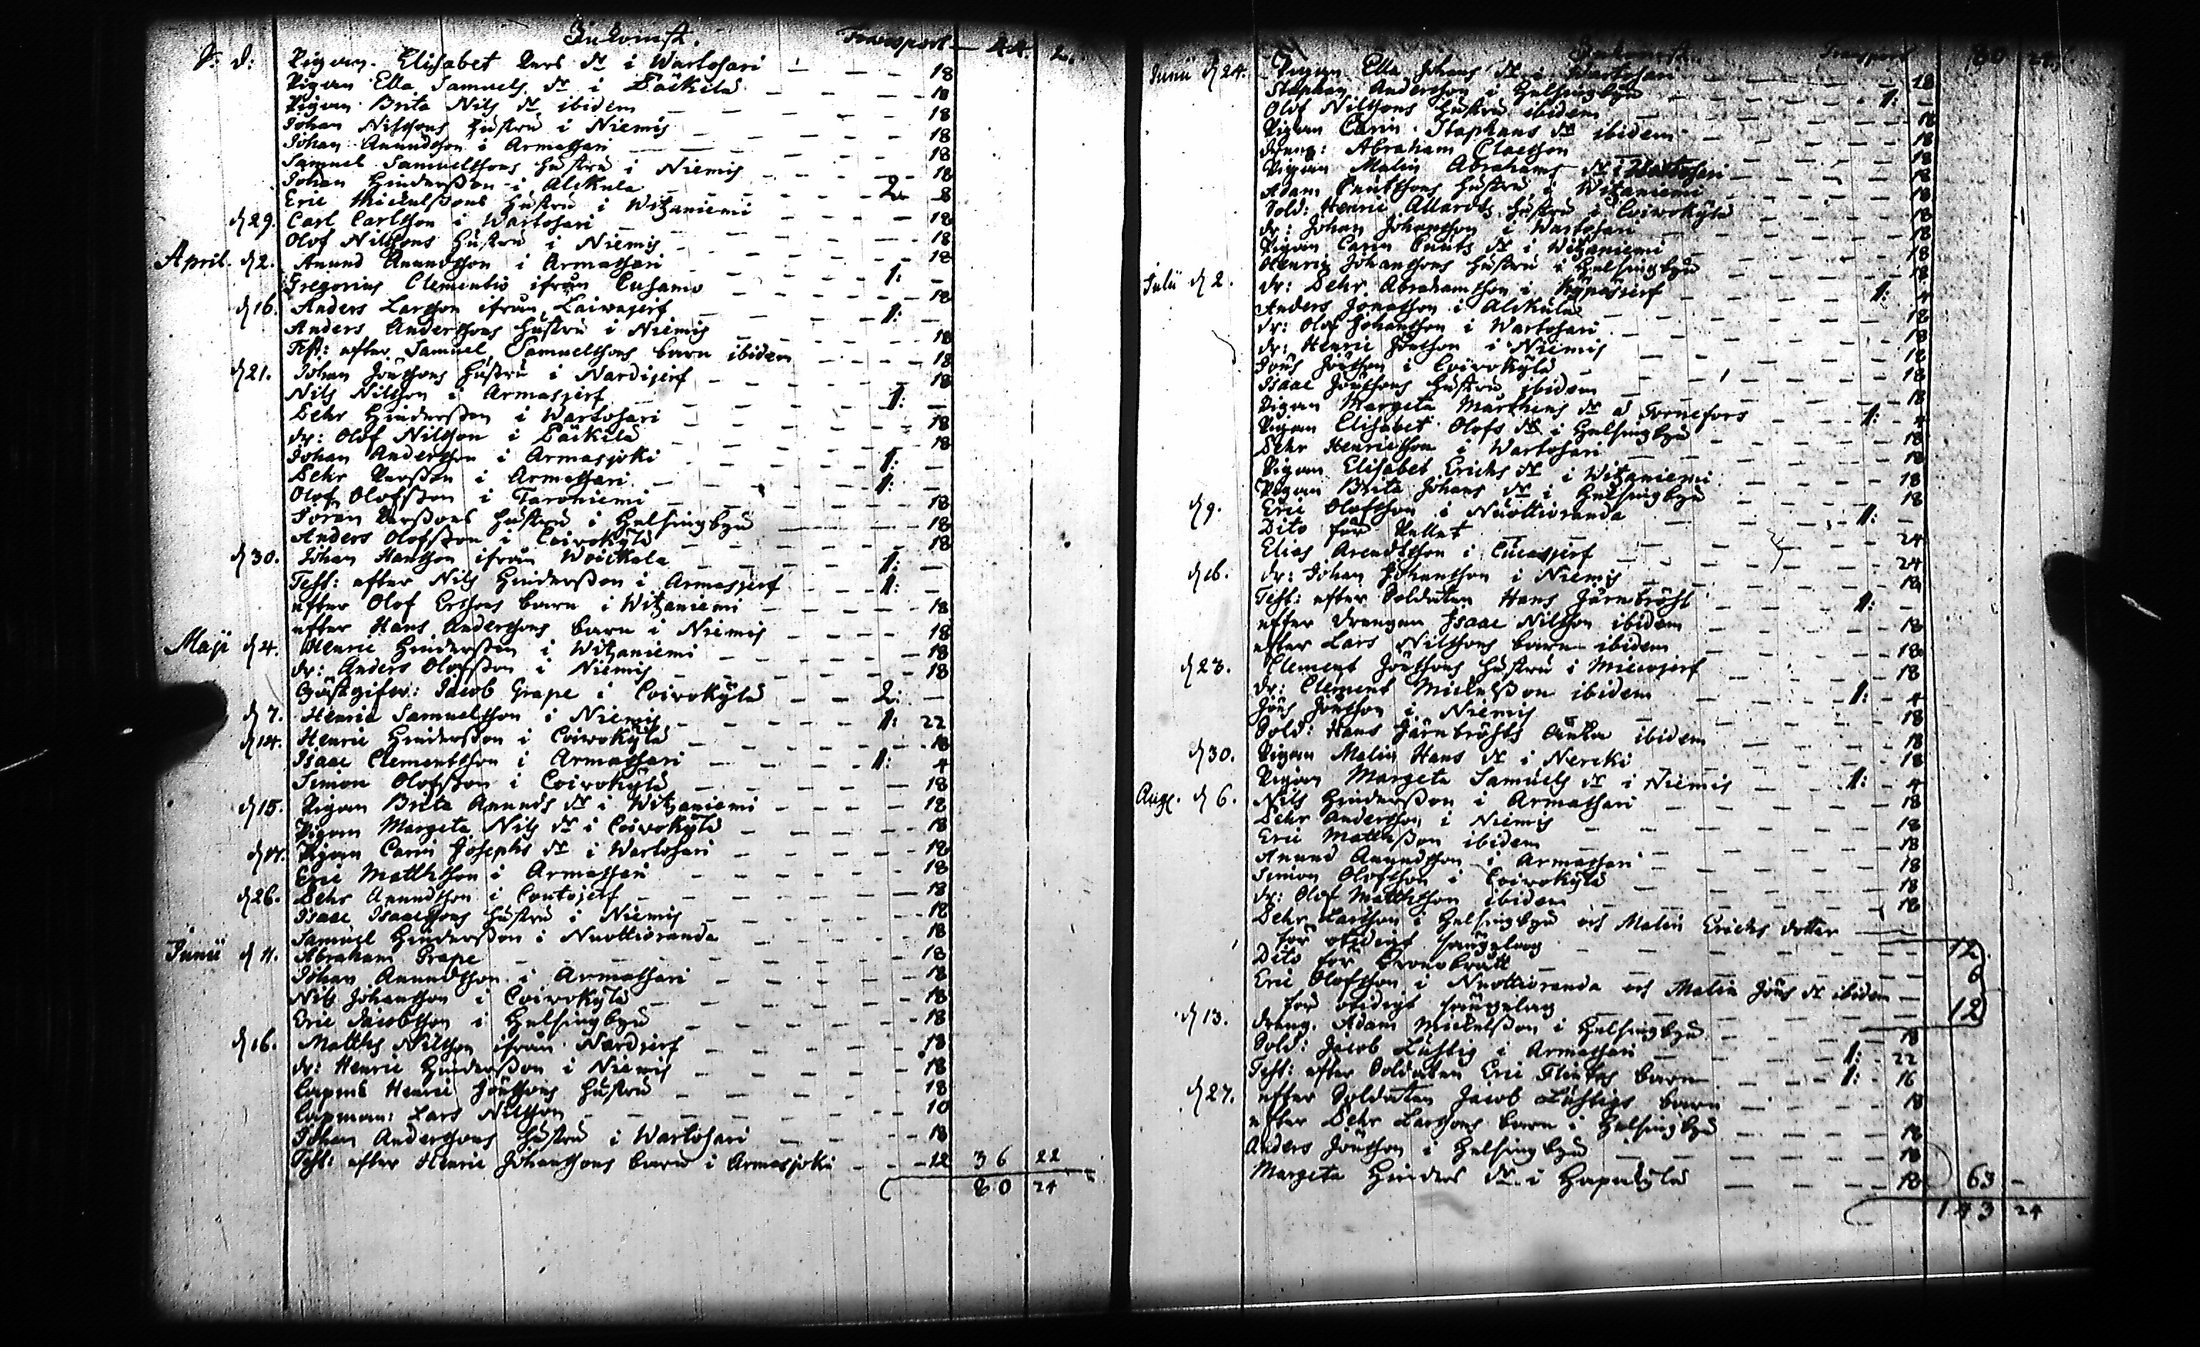 Inkomst. Transport — 44. 2.
d: d: Pigan. Elisabet Pers dr i Wartosari — — — 18
Pigan Ella Samuels dr i Päckilä — — 18
Pigan Brita Nils dr ibidem — — — 18
Johan Nilssons hustru i Niemis — — — 18
Johan Anundsson i Armassari — — — 18
Samuel Samuelssons hustru i Niemis — — — 18
Johan Hindersson i Alckula — — — 2 — 8
Eric Mickelssons hustru i Witzaniemi — — — 18
d 29. Carl Carlsson i Wartosari — — — 18
Olof Nilssons hustru i Niemis — — — 18
April. d 2. Anund Anundsson i Armassari — — — 1: —
Gregorius Clementis ifrån Cusamo — — — 18
d 16. Anders Larsson ifrån Laiwajerf — — — 1: —
Anders Anderssons hustru i Niemis — — — 18
Test: efter Samuel Samuelssons barn ibidem — — 18
d 21. Johan Jönssons hustru i Nardijerf — — — 18
Nils Nilsson i Armasjerf — — — 1: —
Pehr Hindersson i Wartosari — — — 18
dr: Olof Nilsson i Päckilä — — — 18
Johan Andersson i Armasjoki — — — 1: —
Pehr Persson i Armassari — — — 1: —
Olof Olofsson i Taroniemi — — — 18
Sören Perssons hustru i Helsingbyn — — 18
Anders Olofsson i Coivokylä — — — 18
d 30. Johan Hansson ifrån Woickala — — — 1: —
Test: efter Nils Hindersson i Armasjerf — — 1: —
efter Olof Erssons barn i Witzaniemi — — — 18
efter Hans Anderssons barn i Niemis — — — 18
Maji d 4. Henric Hindersson i Witzaniemi — — — 18
dr: Anders Olofsson i Niemis — — — 18
Gästgifv: Jacob Grape i Coivokylä — — 2: —
d 7. Henric Samuelsson i Niemis — — — 1: 22
d 14. Henric Hindersson i Coivokylä — — — 18
Isaac Clementsson i Armassari — — — 1: 4
Simon Olofsson i Coivokylä — — — 18
d 15. Pigan Brita Anunds dr i Witzaniemi — — — 18
Pigan Margeta Nils dr i Coivokylä — — — 18
d 17. Pigan Carin Josephs dr i Wartosari — — — 18
Eric Matthsson i Armassari — — — 18
d 26. Pehr Anundsson i Pontojerf — — — 18
Isaac Isaacssons hustru i Niemis — — — 18
Samuel Hindersson i Nuottioranda — — — 18
Junii d 11. Abraham Grape — — — 18
Johan Anundsson i Armassari — — — 18
Nils Johansson i Coivokylä — — — 18
Eric Jacobsson i Helsingbyn — — — 18
d 16. Matths Nilsson ifrån Nardjerf — — — 18
dr: Henric Hindersson i Niemis — — — 18
Lapmns Henric Jönssons hustru — — — 18
Lapman: Lars Nilsson — — — 10
Johan Anderssons hustru i Wartosari — — — 18
Test: efter Henric Johanssons barn i Armasjoki — — 12 36 22
80 24
Inkomst. Transport 80 24.
Junii d 24. Pigan Ella Johans dr i Wartosari — — — 18
Stephan Andersson i Helsingbyn — — — 1: —
Olof Nilssons hustru ibidem — — — 18
Pigan Carin Stephans dr ibidem — — — 18
dreng: Abraham Claesson — — — 18
Pigan Malin Abrahams dr i Wartosari — — 18
Adam Cnutssons hustru i Witzaniemi — — — 18
Sold: Henric Allardz hustru i Coivokylä — — — 18
dr: Johan Johansson i Wartosari — — — 18
Pigan Carin Cnuts dr i Witzaniemi — — — 18
Henric Johanssons hustru i Helsingbyn — — — 18
Julii d 2. dr: Pehr Abrahamsson i — — — 1: 4
Anders Jonasson i Alckula — — — 18
dr: Olof Johansson i Wartosari — — — 18
dr: Henric Jönsson i Niemis — — — 18
Jöns Jönsson i Coivokylä — — — 18
Isaac Jönssons hustru ibidem — — — 18
Pigan Margeta Marthens dr a Tornefors — — 1: 4
Pigan Elisabet Olofs dr i Helsingbyn — — — 18
Pehr Henricsson i Wartosari — — — 18
Pigan Elisabet Erichs dr i Witzaniemi — — — 18
Pigan Brita Johans dr i Helsingbyn — — — 18
d 9. Eric Olofsson i Nuottioranda — — — 1: —
Dito för Pallet — — — 24
Elias Arendsson i Cucasjerf — — — 24
d 16. dr: Johan Johansson i Niemis — — — 18
Test: efter Soldaten Hans Järnbröst — — — 1: —
efter drengen Isaac Nilsson ibidem — — — 18
efter Lars Nilssons barn ibidem — — — 18
d 23. Clement Jönssons hustru i Miecojerf — — — 18
dr: Clement Mickelsson ibidem — — — 1: 4
Jöns Jönsson i Niemis — — — 18
Sold: Hans Järnbrösts Änka ibidem — — — 18
d 30. Pigan Malin Hans dr i Nercki — — — 18
Pigan Margeta Samuels dr i Niemis — — — 1: 4
Aug. d 6. Nils Hindersson i Armassari — — — 18
Pehr Andersson i Niemis — — — 18
Eric Matthsson ibidem — — — 18
Anund Anundsson i Armassari — — — 18
Simon Olofsson i Coivokylä — — — 18
dr: Olof Matthsson ibidem — — — 18
Pehr Larsson i Helsingbyn och Malin Erichs dotter
för otidigt sängelag — — — 12
Dito för — — — 6
Eric Olofsson i Nuottioranda och Malin Jöns dr ibidem
för otidigt sängelag — — — 12
d 13. dreng. Adam Mickelsson i Helsingbyn — — — 18
Sold: Jacob Lustig i Armassari — — — 1: 22
Test: efter Soldaten Eric Flinks barn — — 1: 16
d 27. efter Soldaten Jacob Lustigs barn — — — 18
efter Pehr Larssons barn i Helsingbyn — — — 18
Anders Jönsson i Helsingbyn — — — 18
Margeta Hinders dr i Hapakylä — — — 18 63 —
143 24